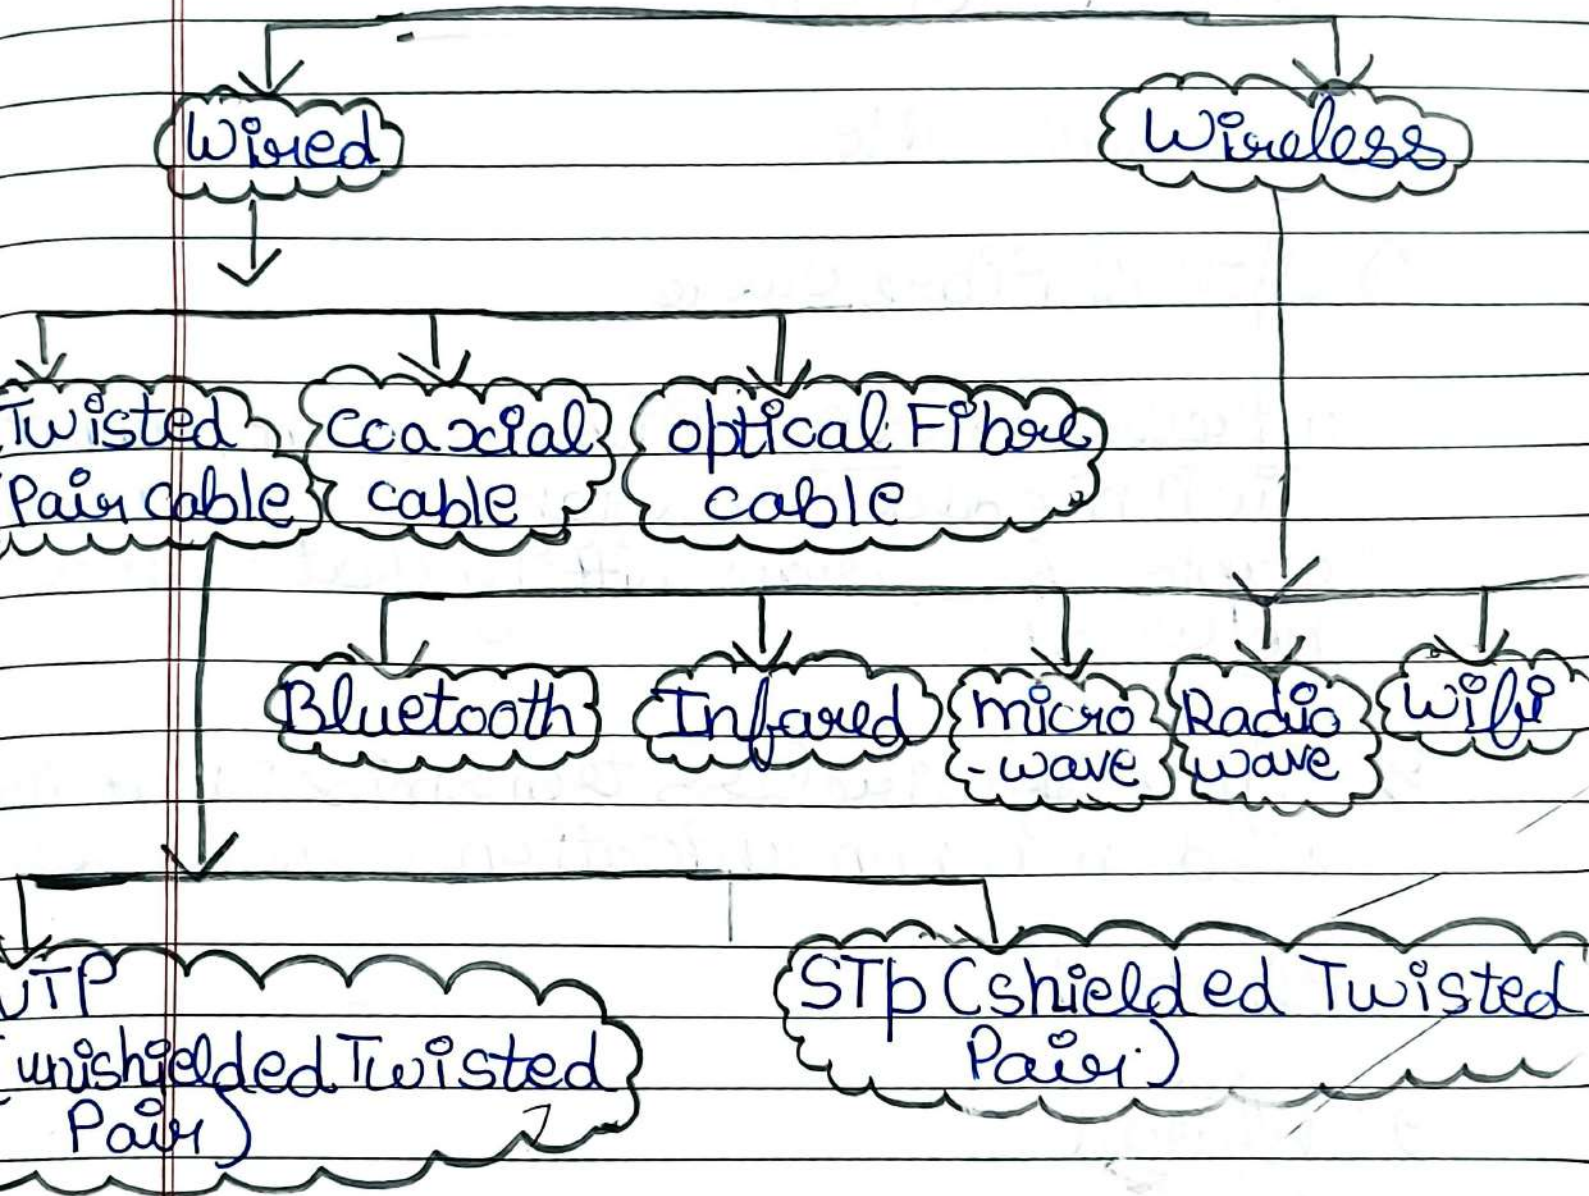 Wired
Wireless
Twisted
Pair cable
coaxial
cable
optical Fibre
cable
Bluetooth
Infared
micro
-wave
Radio
wave
Wifi
UTP
(unishielded Twisted
Pair)
STp (shielded Twisted
Pair)